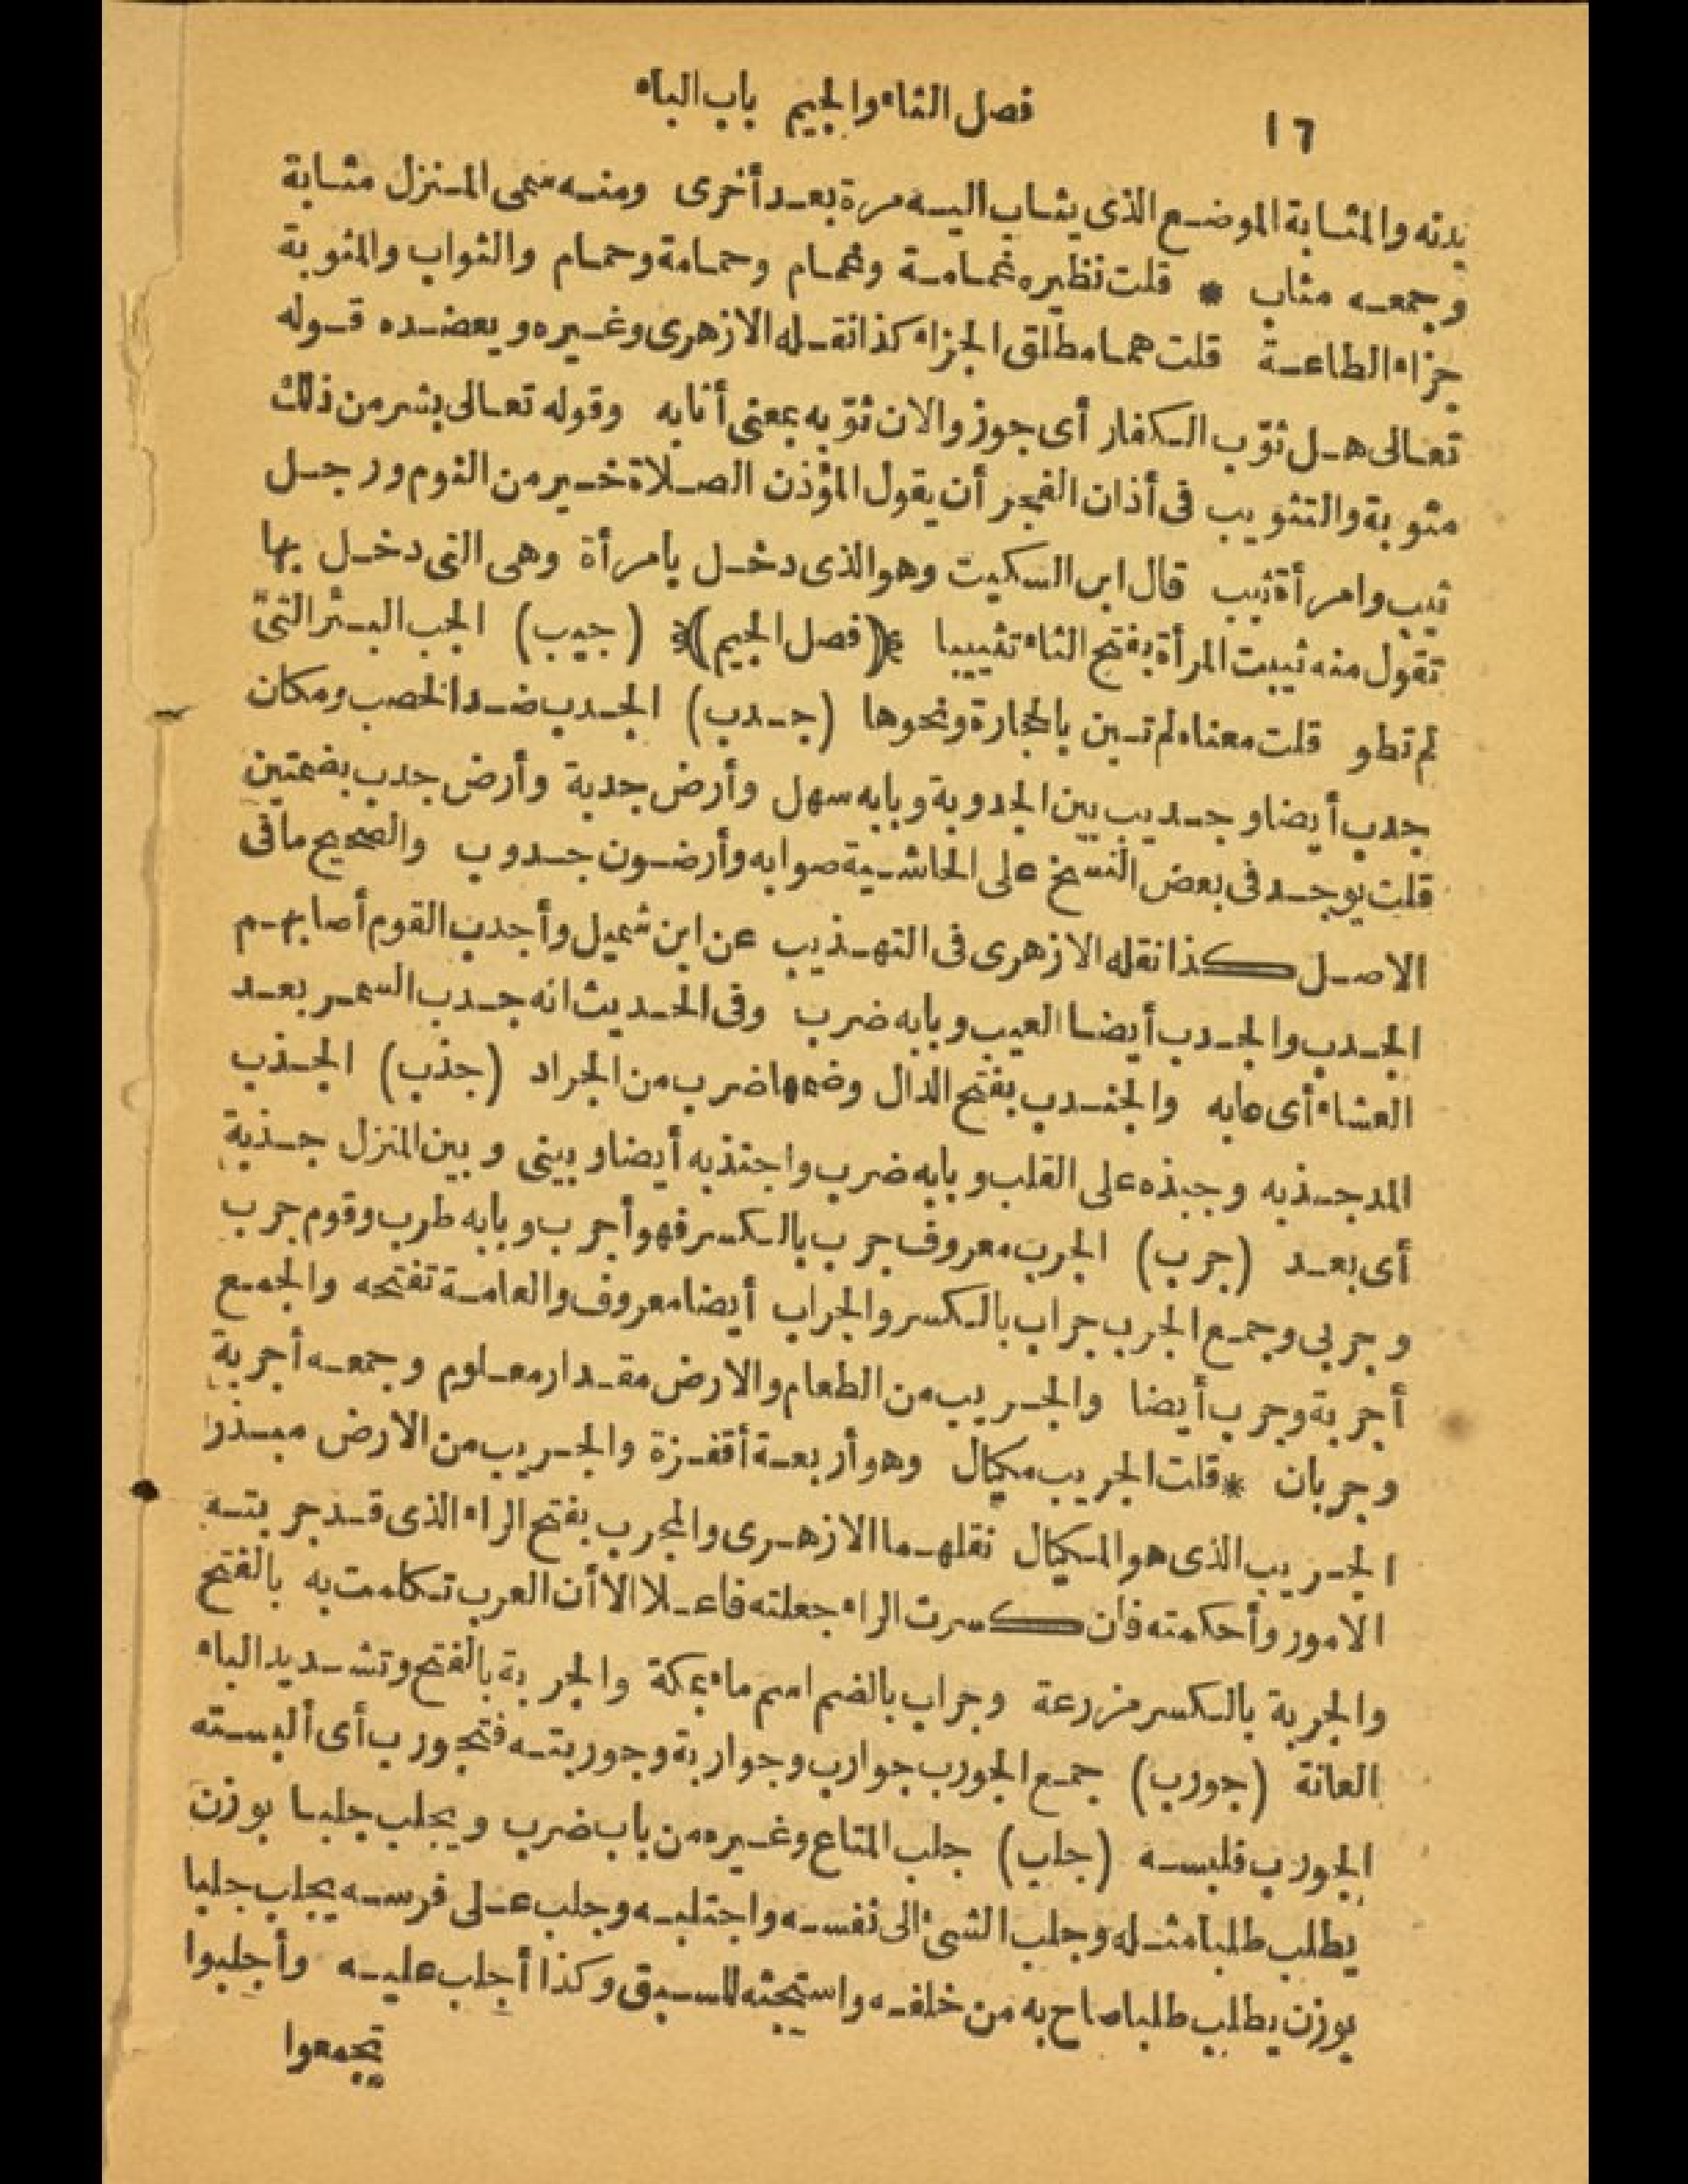 ١٦
فصل الثاء والجيم باب الباء
بدنه والمثابة الموضع الذى يثاب اليه مرة بعد أخرى ومنه سمى المنزل مثابة
وجمعه مثاب * قلت نظيره غمامة وغمام وحمامة وحمام والثواب والمثوبة
جزاء الطاعة قلت هما مطلق الجزاء كذا نقله الازهرى وغيره ويعضده قوله
تعالى هل ثوّب الكفار أى جوز والان ثوّبه بمعنى أثابه وقوله تعالى بشر من ذلك
مثوبة والتثويب فى أذان الفجر أن يقول المؤذن الصلاة خير من النوم ورجل
ثيب وامرأة ثيب قال ابن السكيت وهو الذى دخل بامرأة وهى التى دخل بها
تقول منه ثيبت المرأة بفتح الثاء تثييبا (فصل الجيم) (جبب) الجب البئر التى
لم تطو قلت معناه لم تبن بالحجارة ونحوها (جدب) الجدب ضد الخصب ومكان
جدب أيضا وجديب بين الجدوبة وبابه سهل وأرض جدبة وأرض جدب بضمتين
قلت يوجد فى بعض النسخ على الحاشية صوابه وأرضون جدوب والصحيح ما فى
الاصل كذا نقله الازهرى فى التهذيب عن ابن شميل وأجدب القوم أصابهم
الجدب والجدب أيضا العيب وبابه ضرب وفى الحديث انه جدب السمر بعد
العشاء أى عابه والجندب بفتح الدال وضمها ضرب من الجراد (جذب) الجذب
المد جذبه وجبذه على القلب وبابه ضرب واجتذبه أيضا وبينى وبين المنزل جذبة
أى بعد (جرب) الجرب معروف جرب بالكسر فهو أجرب وبابه طرب وقوم جرب
وجربى وجمع الجرب جراب بالكسر والجراب أيضا معروف والعامة تفتحه والجمع
أجربة وجرب أيضا والجريب من الطعام والارض مقدار معلوم وجمعه أجربة
وجربان * قلت الجريب مكيال وهو أربعة أقفزة والجريب من الارض مبذر
الجريب الذى هو المكيال نقلهما الازهرى والمجرب بفتح الراء الذى قد جربته
الامور وأحكمته فان كسرت الراء جعلته فاعلا الا أن العرب تكلمت به بالفتح
والجربة بالكسر مزرعة وجراب بالضم اسم ماء بمكة والجربة بالفتح وتشديد الباء
العانة (جورب) جمع الجورب جوارب وجواربة وجوربته فتجورب أى ألبسته
الجورب فلبسه (جلب) جلب المتاع وغيره من باب ضرب ويجلب جلبا بوزن
يطلب طلبا مثله وجلب الشئ الى نفسه واجتلبه وجلب على فرسه يجلب جلبا
بوزن يطلب طلبا صاح به من خلفه واستحثه للسبق وكذا أجلب عليه وأجلبوا
تجمعوا